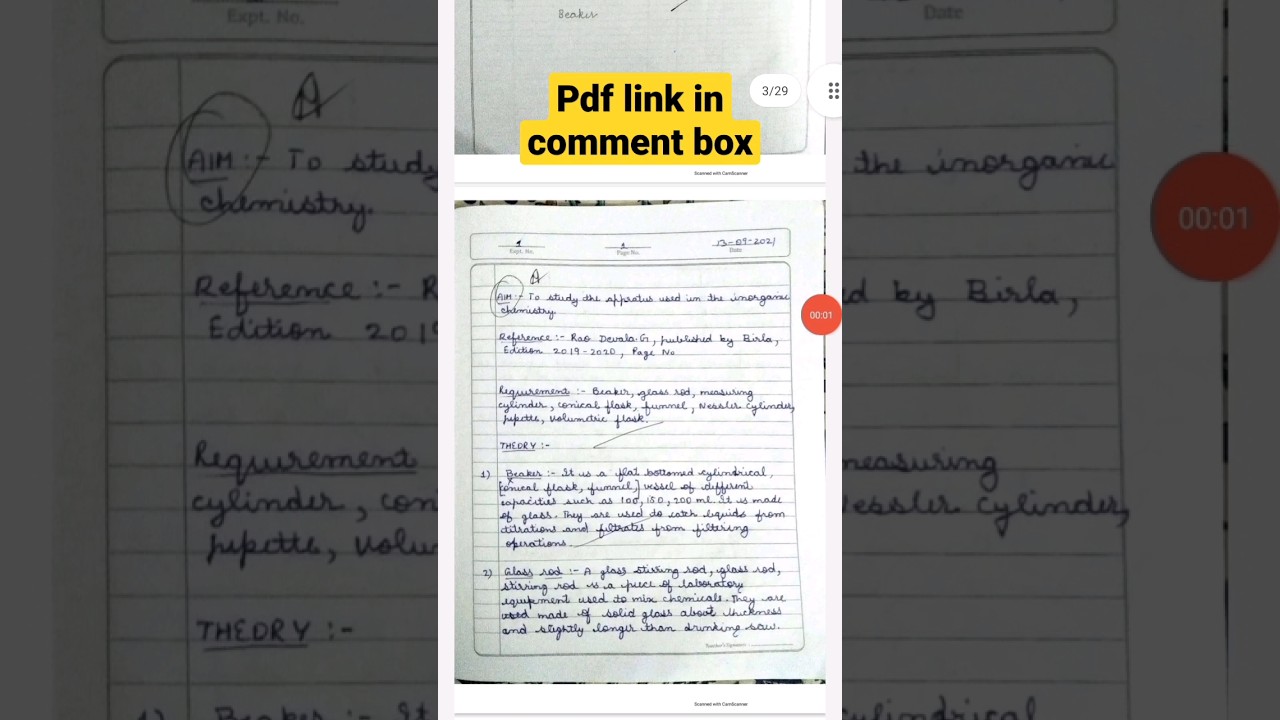 Expt. No.
Date
Beaker
Pdf link in
comment box
3/29
Scanned with CamScanner
AIM :- To study
chemistry.
Reference :- R
Edition 2019
Requirement
cylinder, con
pipette, volu
THEORY :-
1
Expt. No.
1
Page No.
13-09-2021
Date
A
AIM :- To study the appratus used in the inorganic
chemistry.
Reference :- Rao Devala.G, published by Birla,
Edition 2019-2020, Page No
Requirement :- Beaker, glass rod, measuring
cylinder, conical flask, funnel, Nessler cylinder,
pipette, volumetric flask.
THEORY :-
1) Beaker :- It is a flat bottomed cylindrical,
[conical flask, funnel] vessel of different
capacities such as 100, 150, 200 ml. It is made
of glass. They are used to catch liquids from
titrations and filtrates from filtering
operations.
2) Glass rod :- A glass stirring rod, glass rod,
stirring rod is a piece of laboratory
equipment used to mix chemicals. They are
used made of solid glass about thickness
and slightly longer than drinking
Teacher's Signature
Scanned with CamScanner
00:01
Date
the inorganic
d by Birla,
measuring
Nessler cylinder,
cylindrical
00:01